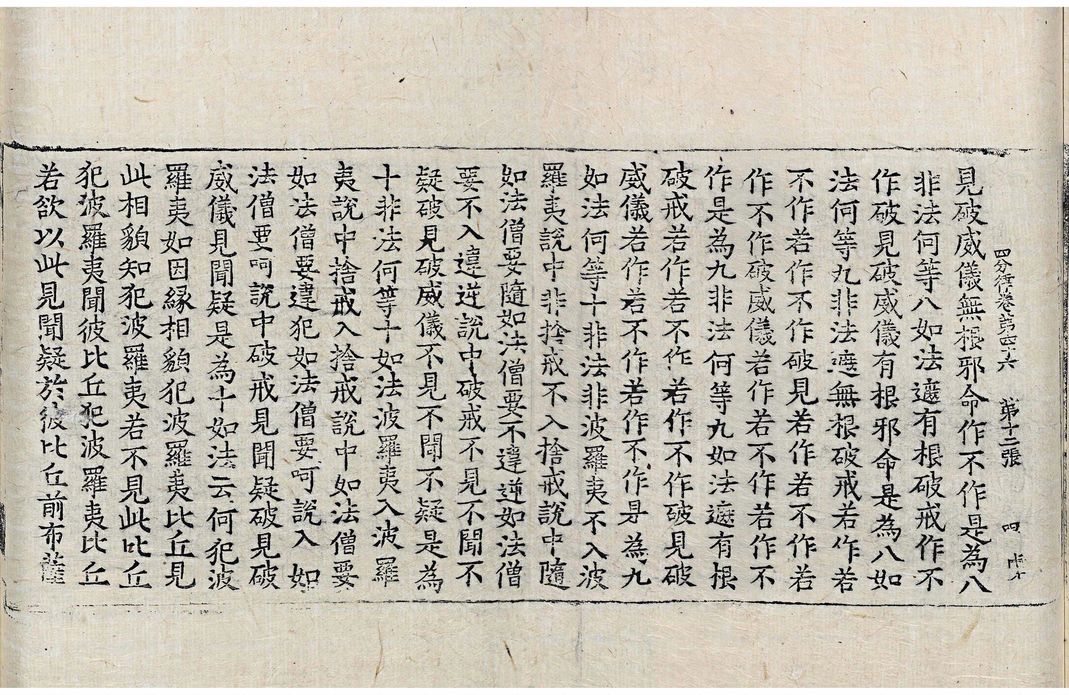 四分律卷第四十六 第十二張 四
見破威儀無根邪命作不作是為八
非法何等八如法遮有根破戒作不
作破見破威儀有根邪命是為八如
法何等九非法遮無根破戒若作若
不作若作不作破見若作若不作若
作不作破威儀若作若不作若作不
作是為九非法何等九如法遮有根
破戒若作若不作若作不作破見破
威儀若作若不作若作不作是為九
如法何等十非法非波羅夷不入波
羅夷說中非捨戒不入捨戒說中隨
如法僧要隨如法僧要不違逆如法僧
要不入違逆說中破戒不見不聞不
疑破見破威儀不見不聞不疑是為
十非法何等十如法波羅夷入波羅
夷說中捨戒入捨戒說中如法僧要
如法僧要違犯如法僧要呵說入如
法僧要呵說中破戒見聞疑破見破
威儀見聞疑是為十如法云何犯波
羅夷如因緣相貌犯波羅夷比丘見
此相貌知犯波羅夷若不見此比丘
犯波羅夷聞彼比丘犯波羅夷比丘
若欲以此見聞疑於彼比丘前布薩